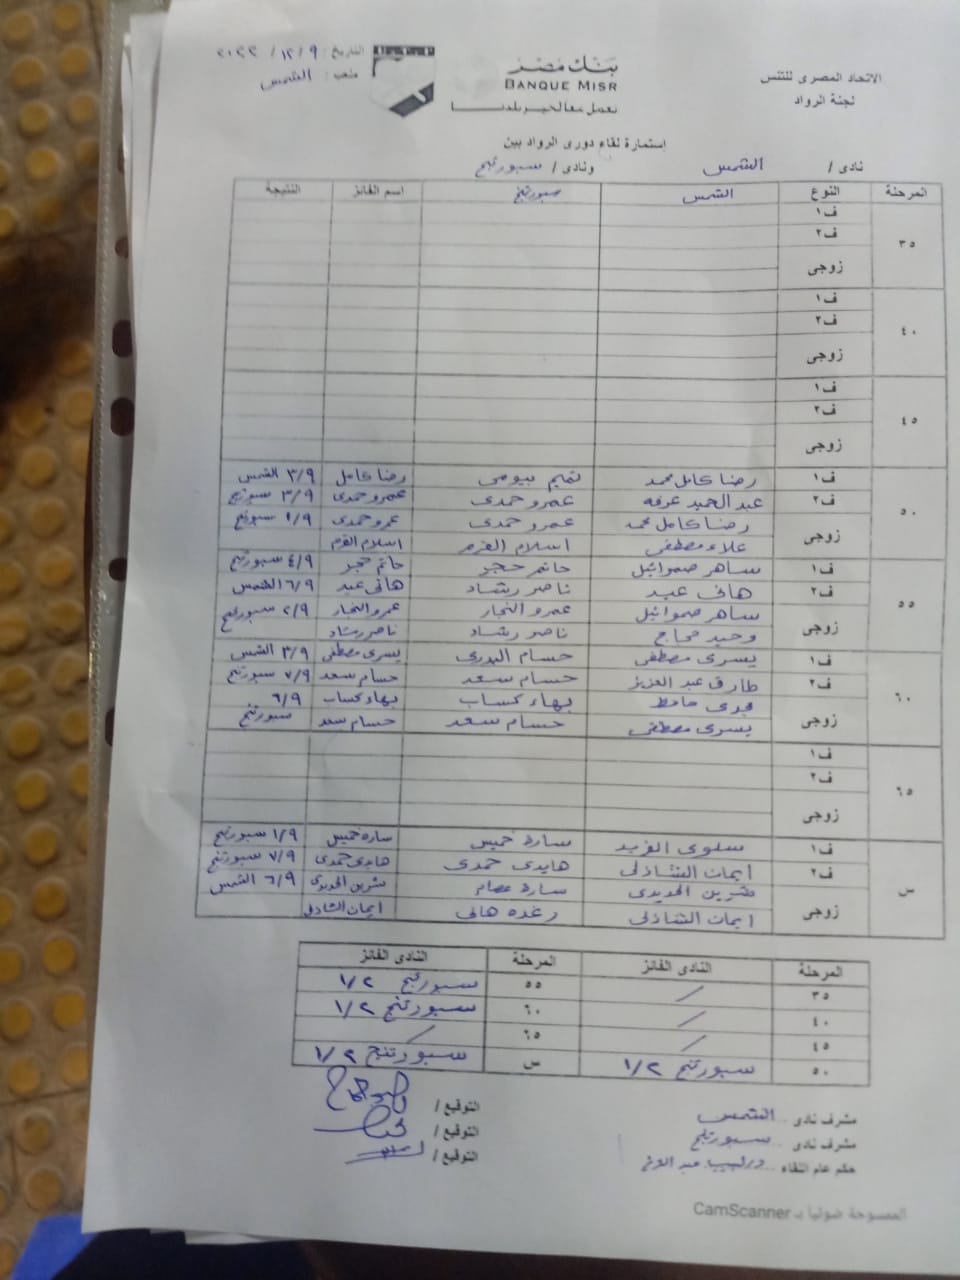 الاتحاد المصرى للتنس
لجنة الرواد
بنك مصر
BANQUE MISR
نعمل معا لخير بلدنا
التاريخ : ٢٠٢٢/١٢/٩
ملعب : الشمس
إستمارة لقاء دورى الرواد بين
نادى / الشمس ونادى / سبورتنج
المرحلة النوع الشمس سبورتنج اسم الفائز النتيجة
٣٥ ف١
ف٢
زوجى
٤٠ ف١
ف٢
زوجى
٤٥ ف١
ف٢
زوجى
٥٠ ف١ رضا كامل محمد تميم بيومى رضا كامل ٣/٩ الشمس
ف٢ عبد الحميد عرفه عمرو حمدى عمرو حمدى ٣/٩ سبورتنج
زوجى رضا كامل محمد عمرو حمدى عمرو حمدى ١/٩ سبورتنج
علاء مصطفى اسلام القرم اسلام القرم
٥٥ ف١ ساهر صموائيل حاتم حجر حاتم حجر ٤/٩ سبورتنج
ف٢ هانى عيد ناصر رشاد هانى عيد ٦/٩ الشمس
زوجى ساهر صموائيل عمرو النجار عمرو النجار ٢/٩ سبورتنج
وحيد حجاج ناصر رشاد ناصر رشاد
٦٠ ف١ يسرى مصطفى حسام البدرى يسرى مصطفى ٣/٩ الشمس
ف٢ طارق عبد العزيز حسام سعد حسام سعد ٧/٩ سبورتنج
زوجى مجدى حافظ بهاء كساب بهاء كساب ٦/٩
يسرى مصطفى حسام سعد حسام سعد سبورتنج
٦٥ ف١
ف٢
زوجى
س ف١ سلوى سارة خميس ساره خميس ١/٩ سبورتنج
ف٢ ايمان الشاذلى هايدى حمدى هايدى حمدى ٧/٩ سبورتنج
زوجى شرين الحديدى سارة عصام شرين الحديدى ٦/٩ الشمس
ايمان الشاذلى رغده هانى ايمان الشاذلى
المرحلة النادى الفائز المرحلة النادى الفائز
٣٥ / ٥٥ سبورتنج ١/٢
٤٠ / ٦٠ سبورتنج ١/٢
٤٥ / ٦٥ /
٥٠ سبورتنج ١/٢ س سبورتنج ١/٢
مشرف نادى .. الشمس التوقيع /
مشرف نادى .. سبورتنج التوقيع /
حكم عام اللقاء .. التوقيع /
الممسوحة ضوئيا بـ CamScanner